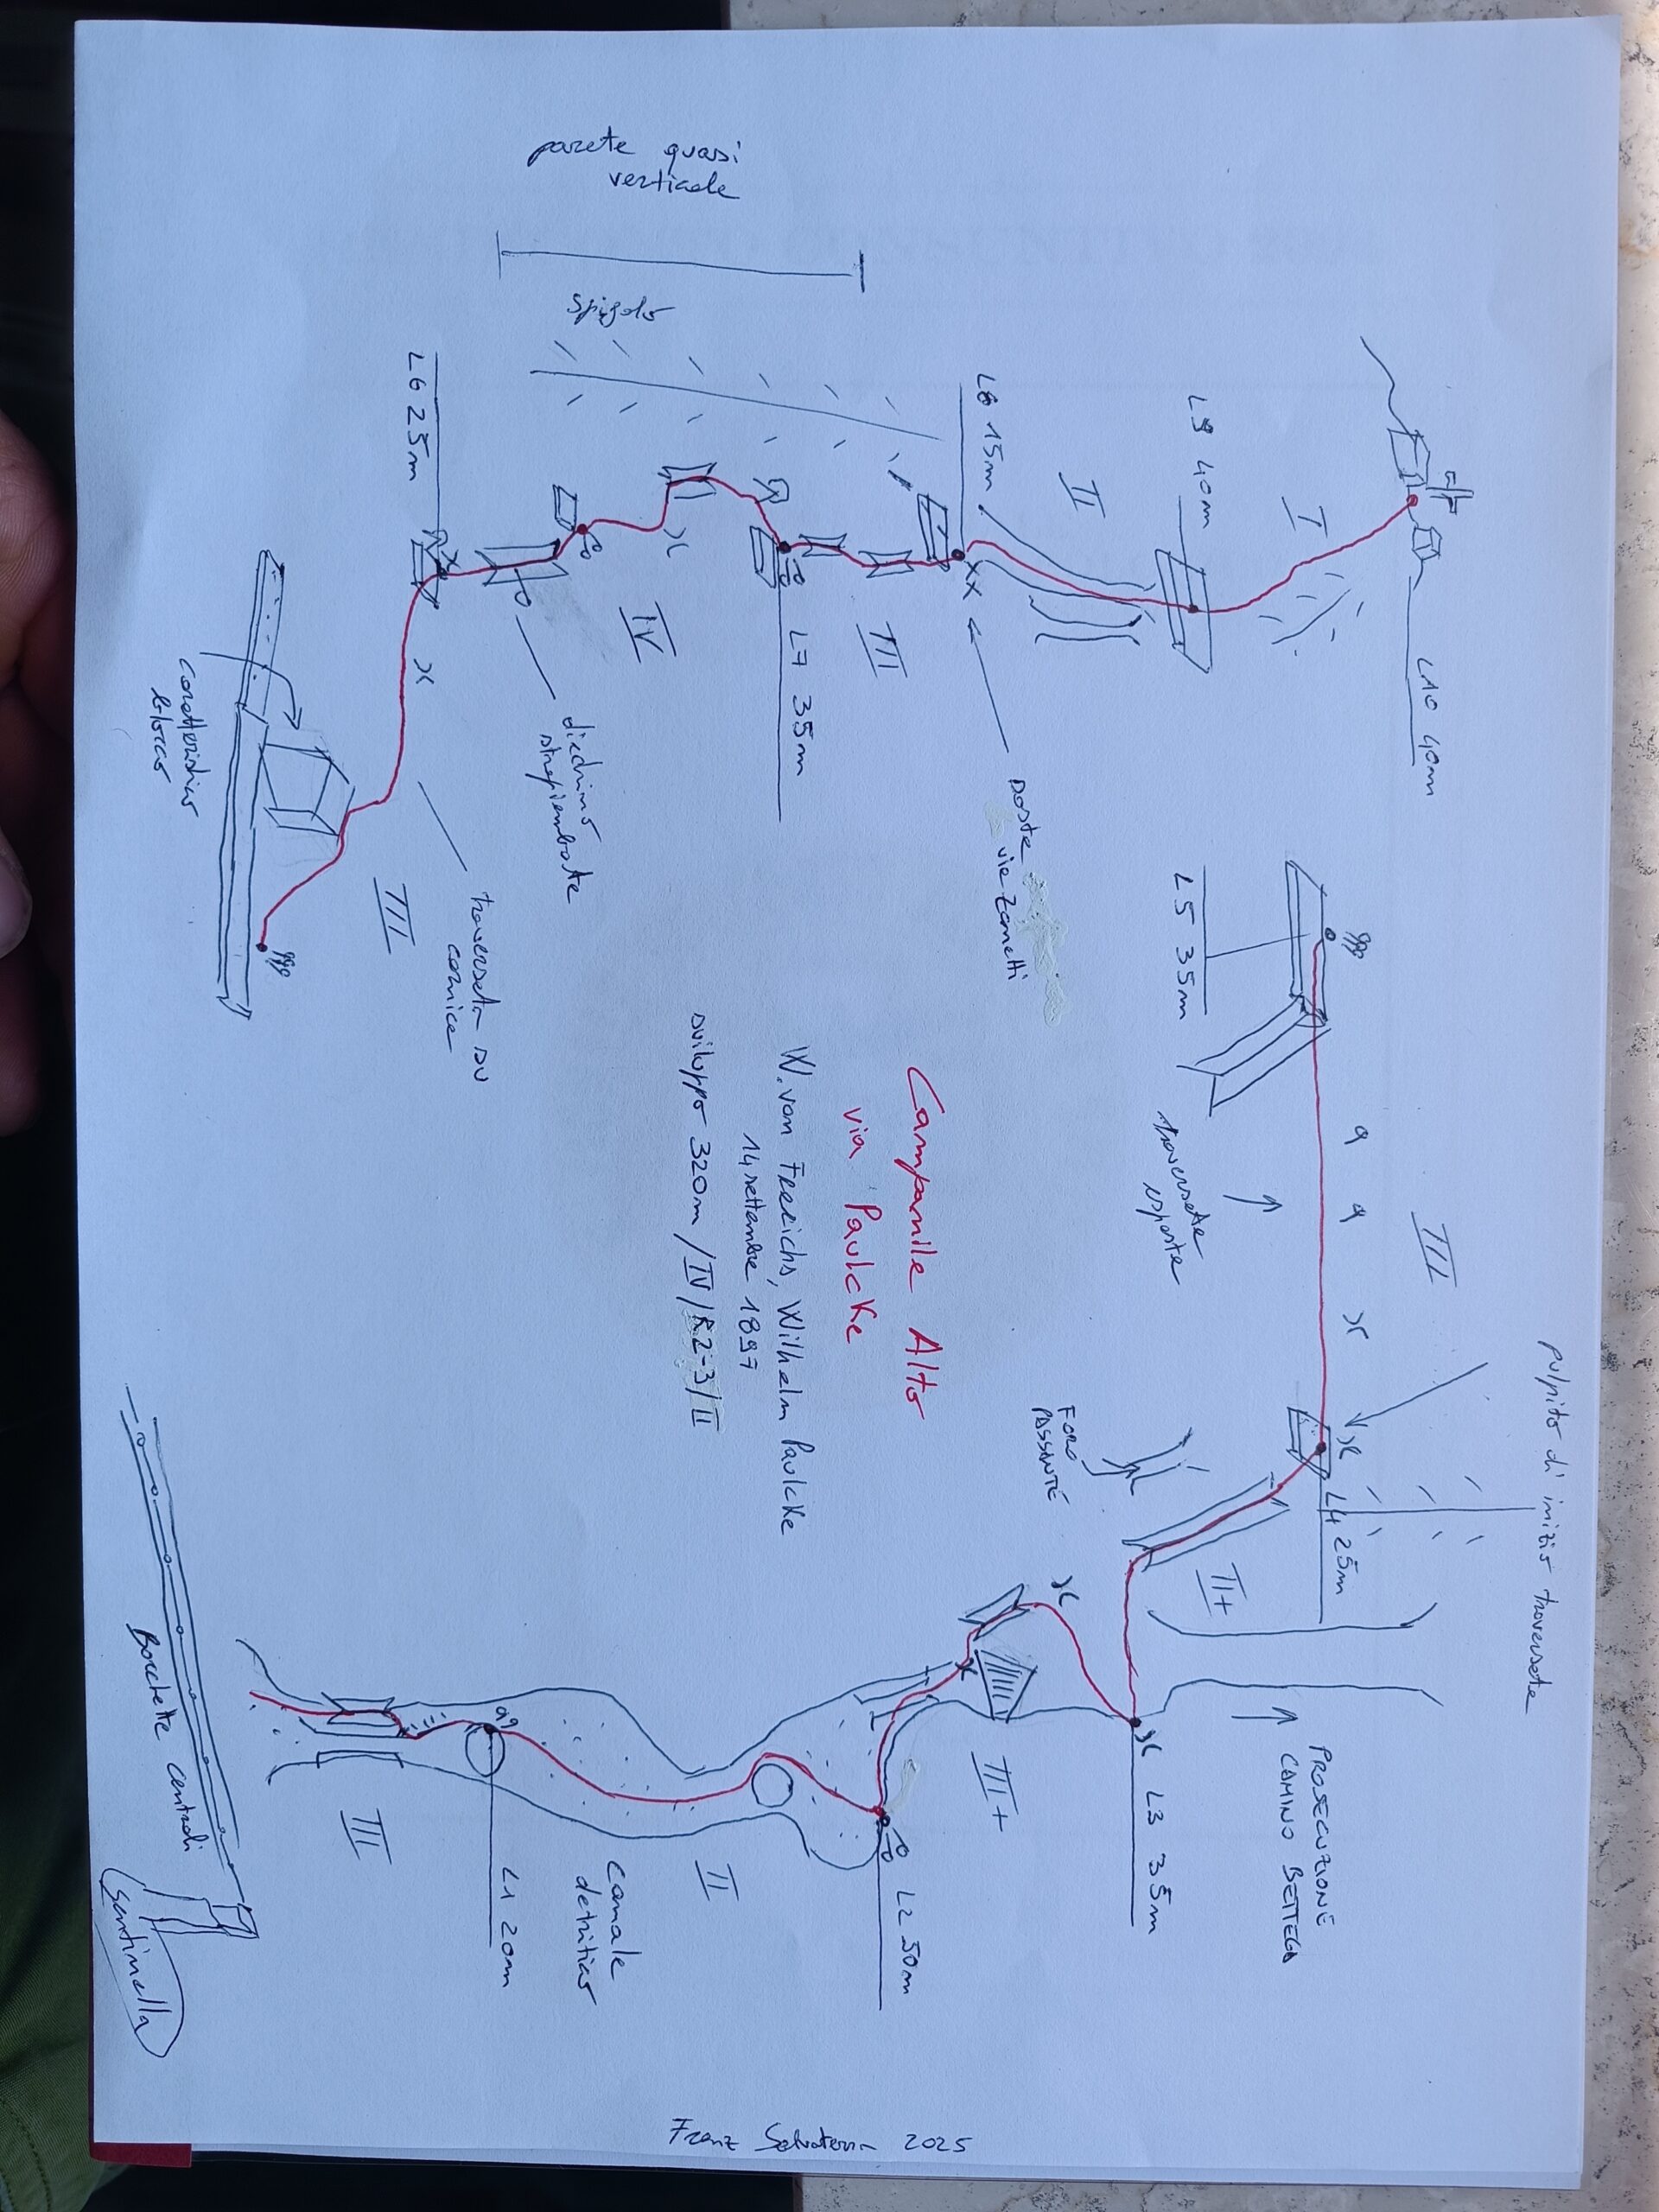 Campanile Alto
via Paulcke
W. von Frerichs, Wilhelm Paulcke
14 settembre 1897
sviluppo 320m / IV / R2-3 / II
Bocchette Centrali
sentinella
III
L1 20m
canale
detritico
II
L2 50m
III+
L3 35m
PROSECUZIONE
CAMINO BETTEGA
FORO
PASSANTE
II+
L4 25m
pulpito di inizio traversata
III
traversata
esposta
L5 35m
caratteristico
blocco
III
traversata su
cornice
L6 25m
diedrino
strapiombante
IV
L7 35m
III
spigolo
parete quasi
verticale
L8 15m
soste
via Zanetti
II
L9 40m
I
L10 40m
Franz Salvaterra 2025